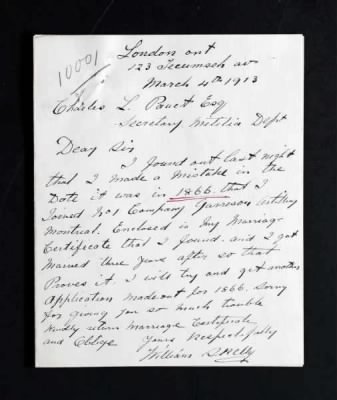 London ont
10001
123 Tecumseh av
March 4th 1913
Charles L. Esq
Secretary Militia Dept
Dear Sir
I found out last night
that I made a Mistake in the
Date it was in 1866. that I
Joined No 1 Company Garrison Artillery
Montreal. Enclosed is my Marriage
Certificate that I found. and I got
Married three years after so that
Proves it. I will try and get another
Application made out for 1866. Sorry
for giving you so much trouble
Kindly return Marriage Certificate
and Oblige Yours Respectfully
William